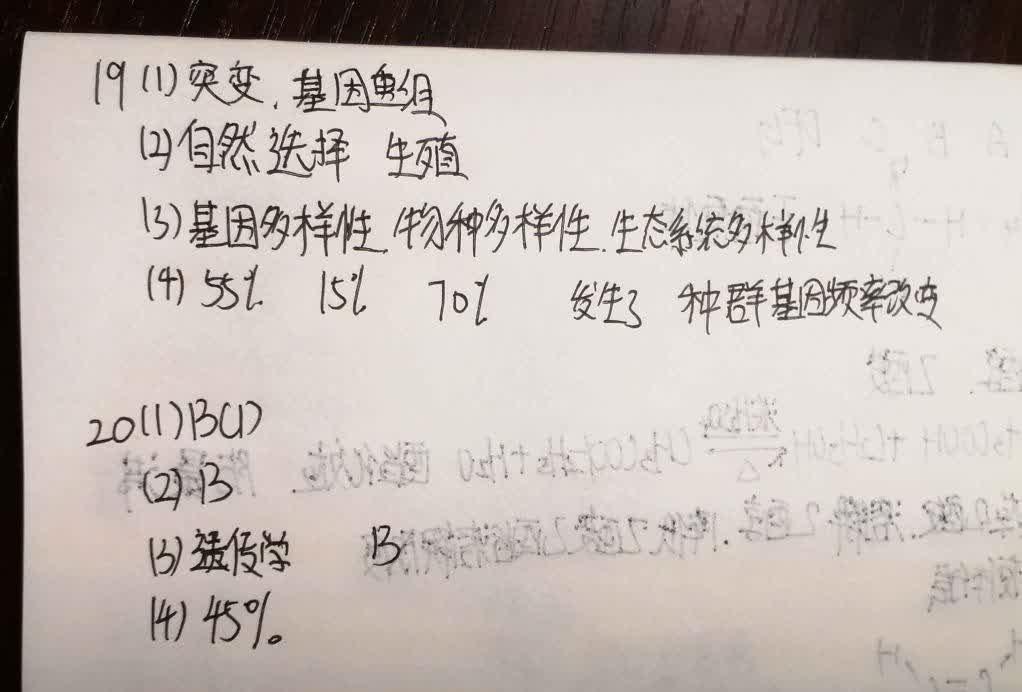 19 (1) 突变、基因重组
(2) 自然选择 生殖
(3) 基因多样性、物种多样性、生态系统多样性
(4) 55% 15% 70% 发生了 种群基因频率改变
20 (1) B(1)
(2) B
(3) 遗传学 B
(4) 45%。